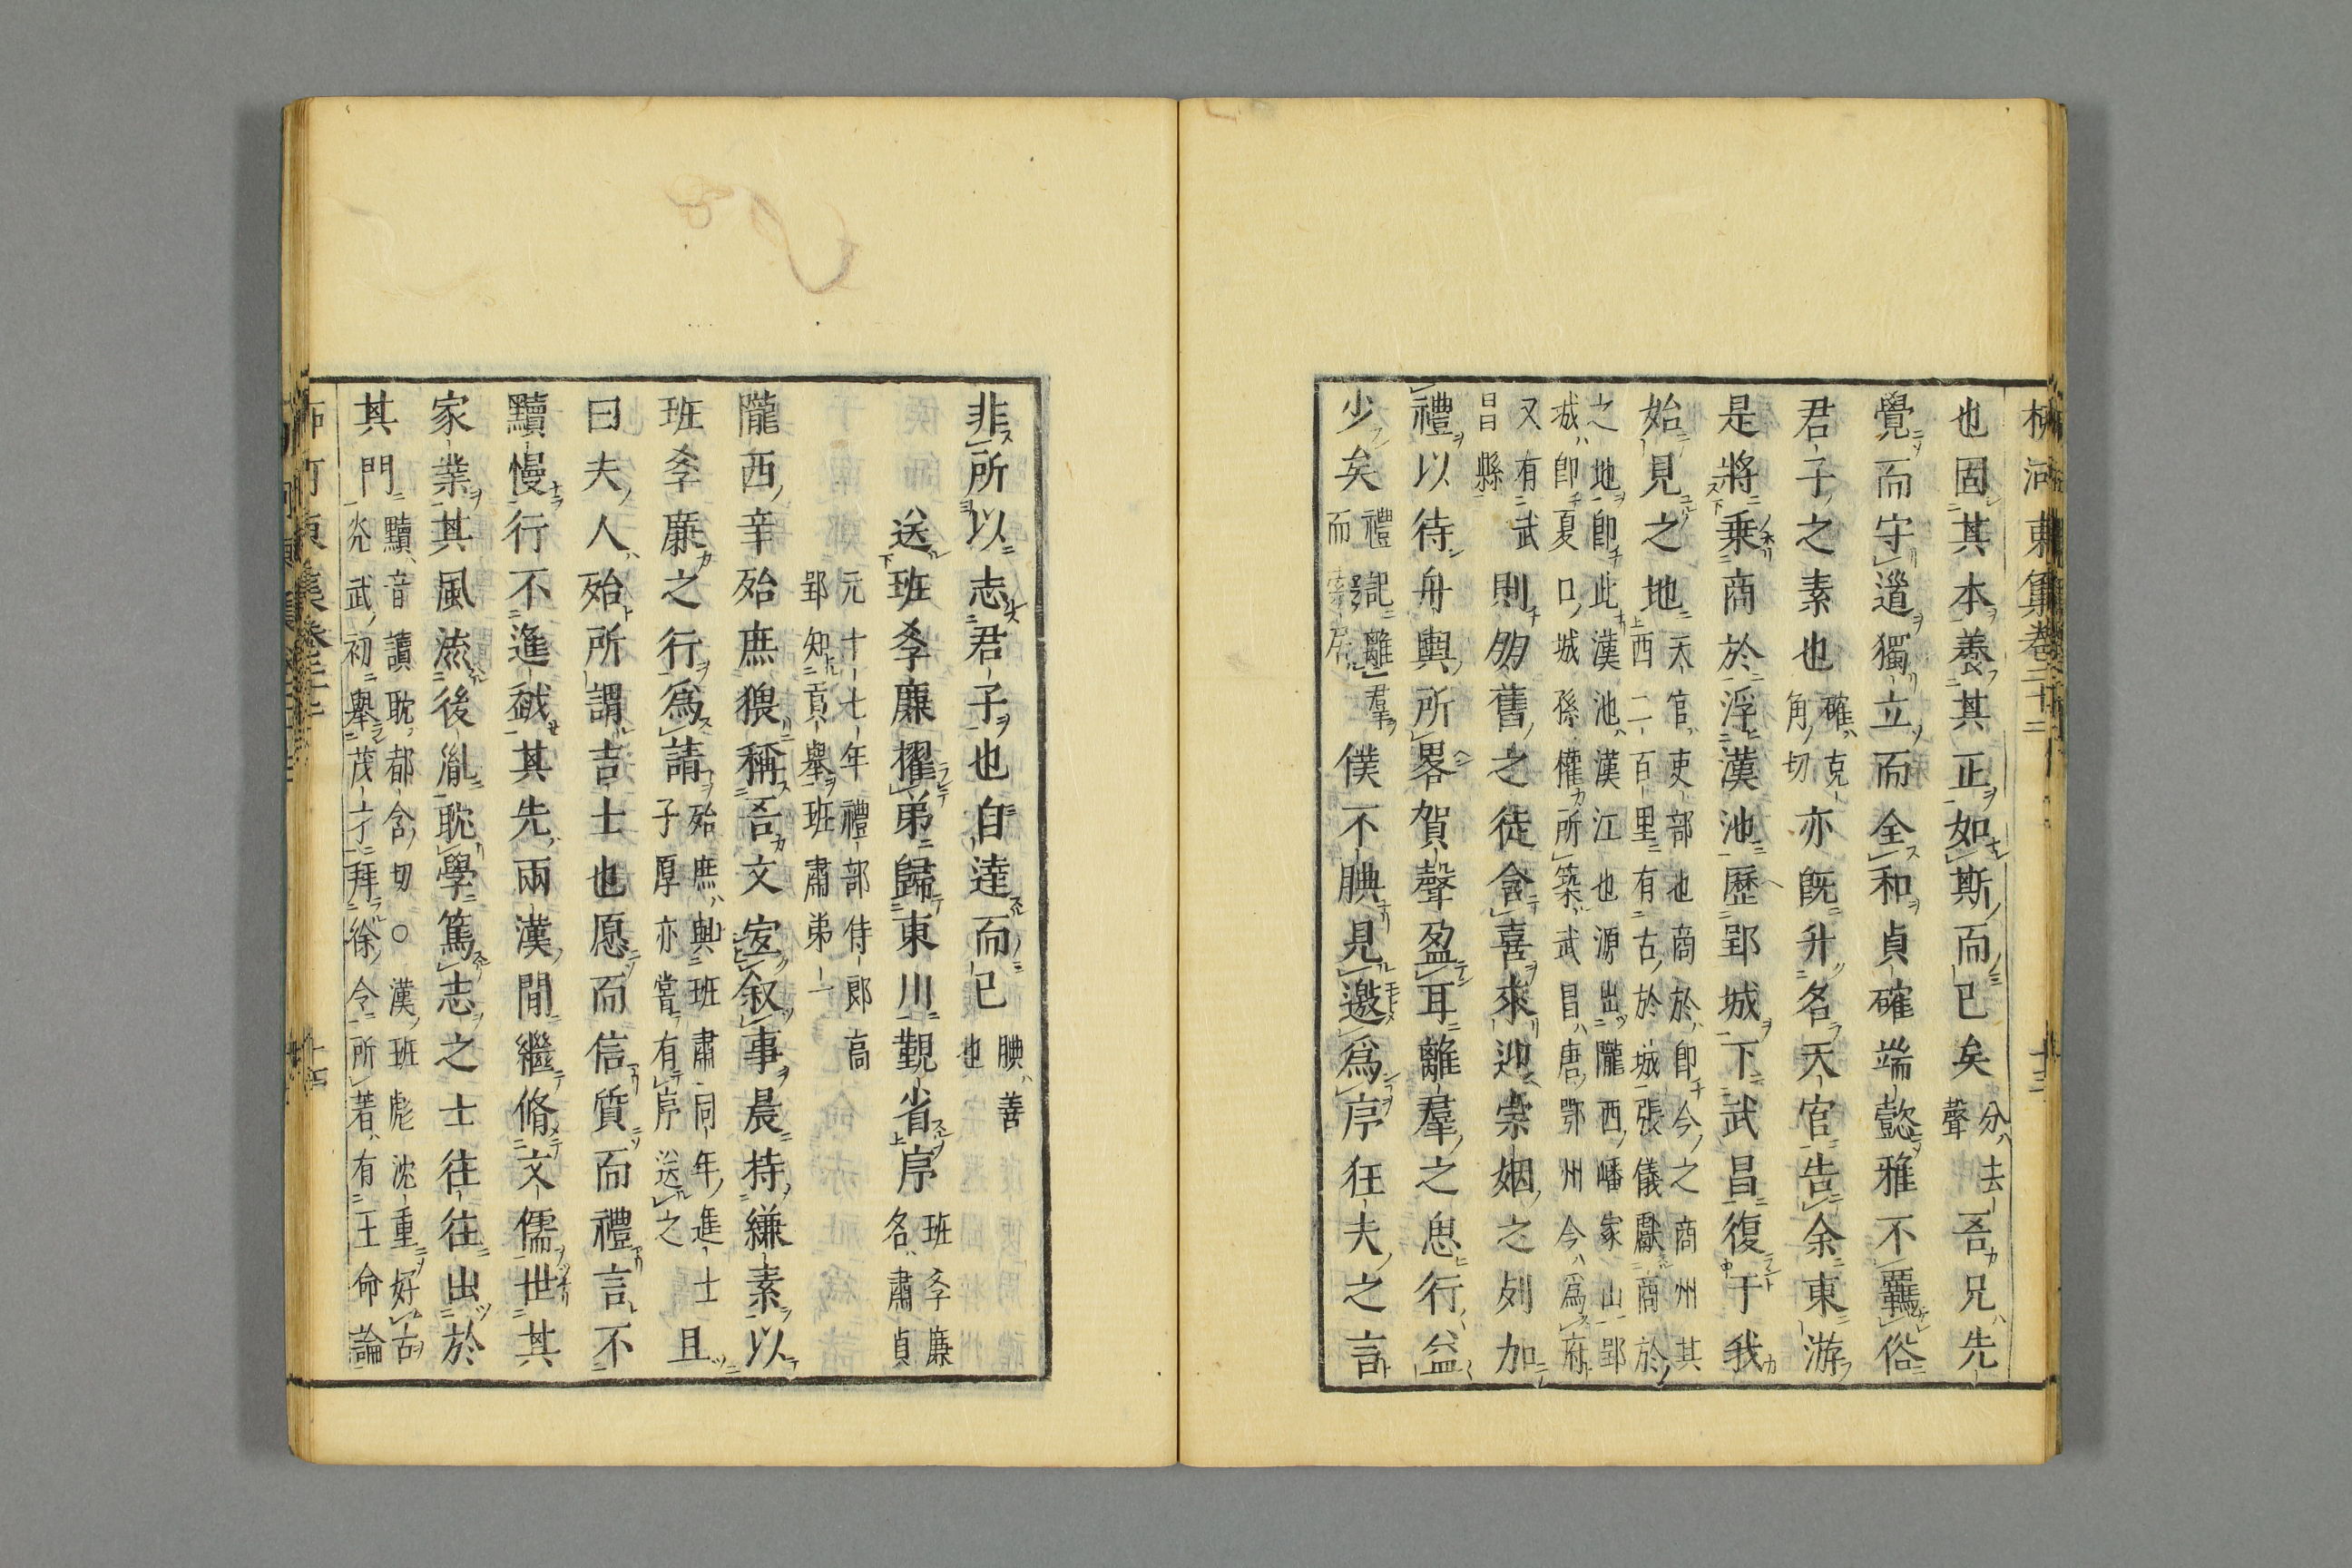 柳河東集卷二十二 十三
也固其本養其正如斯而已矣分去聲吾兄先
覺而守道獨立而全和貞確端懿雅不羈俗
君子之素也確克角切亦既升名天官告余東游
是將乘商於浮漢池歷郢城下武昌復于我
始見之地天官吏部也商於即今之商州其西二百里有古於城張儀獻商於
之地即此漢池漢江也源出隴西嶓家山郢城即夏口城孫權所築武昌唐鄂州今為府
又有武昌縣則朋舊之徒含喜來迎宗姻之列加
禮以待舟輿所畧賀聲盈耳離羣之思行益
少矣禮記離羣而索居僕不腆見邀爲序狂夫之言
非所以志君子也自達而已腆善也
送班孝廉擢第歸東川覲省序班孝廉名肅貞
元十七年禮部侍郎高郢知貢舉班肅第一
隴西辛殆庶猥稱吾文宜叙事晨持縑素以
班孝廉之行爲請殆庶與班肅同年進士子厚亦嘗有序送之且
曰夫人殆所謂吉士也愿而信質而禮言不
黷慢行不進越其先兩漢間繼脩文儒世其
家業其風流後胤耽學篤志之士往往出於
其門黷音讀耽都含切○漢班彪沈重好古光武初舉茂才拜徐令所著有王命論